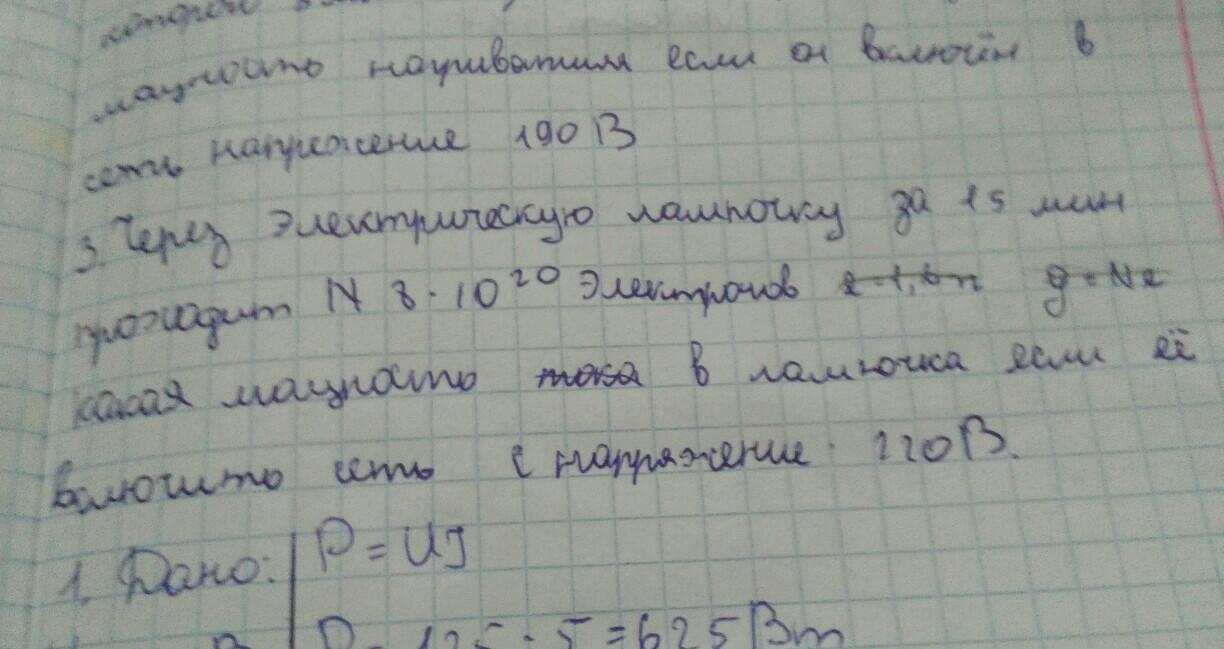 которой
мощность нагревателя если он включён в
сеть напряжение 190 В
3. Через электрическую лампочку за 15 мин
проходит N 3·10²⁰ электронов g=Ne
какая мощность тока в лампочка если её
включить сеть с напряжение 220 В.
1. Дано: P = UI
P = 125 · 5 = 625 Вт